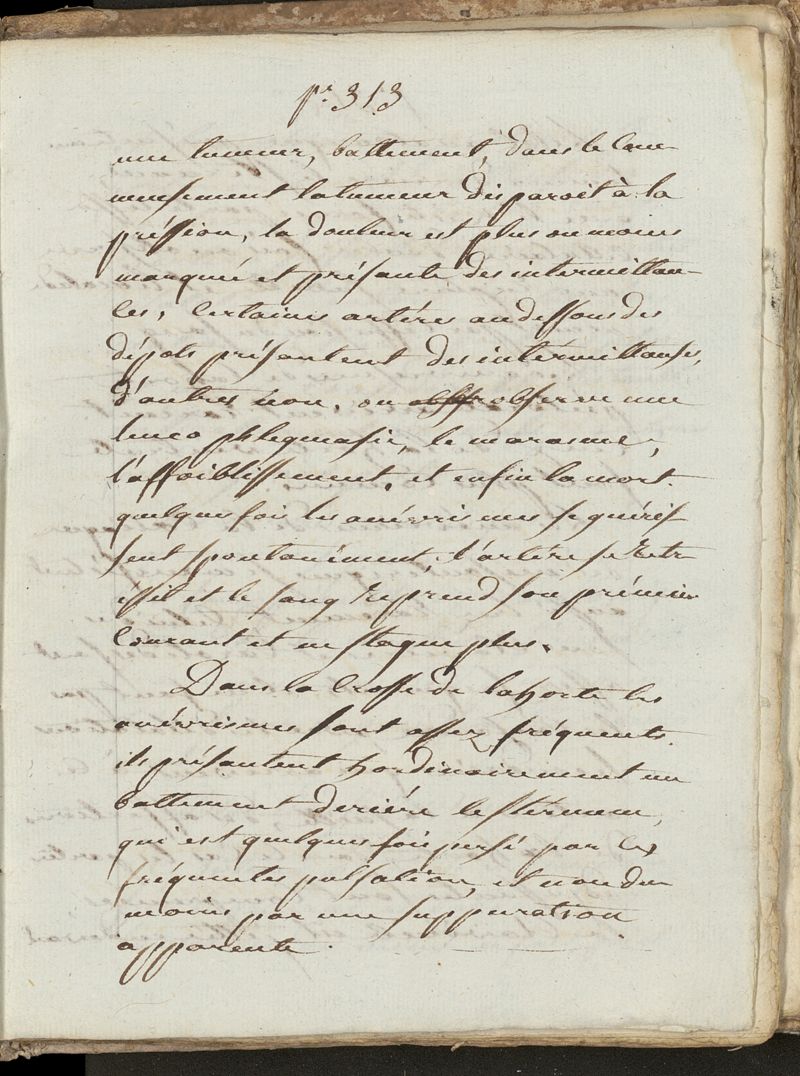 pr. 313
une tumeur, battement, dans le Com
mensement la tumeur disparoit à la
préssion, la douleur est plus ou moins
marquée et présente des intermittan-
ces, Certaines artères au dessous des
dépots présentent des intermittanses,
d'autres non. on observe une
leuco phlegmasie, le marasme,
l'affoiblissement, et enfin la mort.
quelques fois les anévrismes se guéris
sent spontanément, l'artère se retr
éssit et le sang reprend son prémier
Courant et ne stagne plus.
Dans la Crosse de lahorte les
anévrismes sont assez fréquents.
ils présentent hordinairement un
battement deriére le stérnum,
qui est quelques fois persé par les
fréquentes pulsation, et non du
moins par une suppuration
apparente.